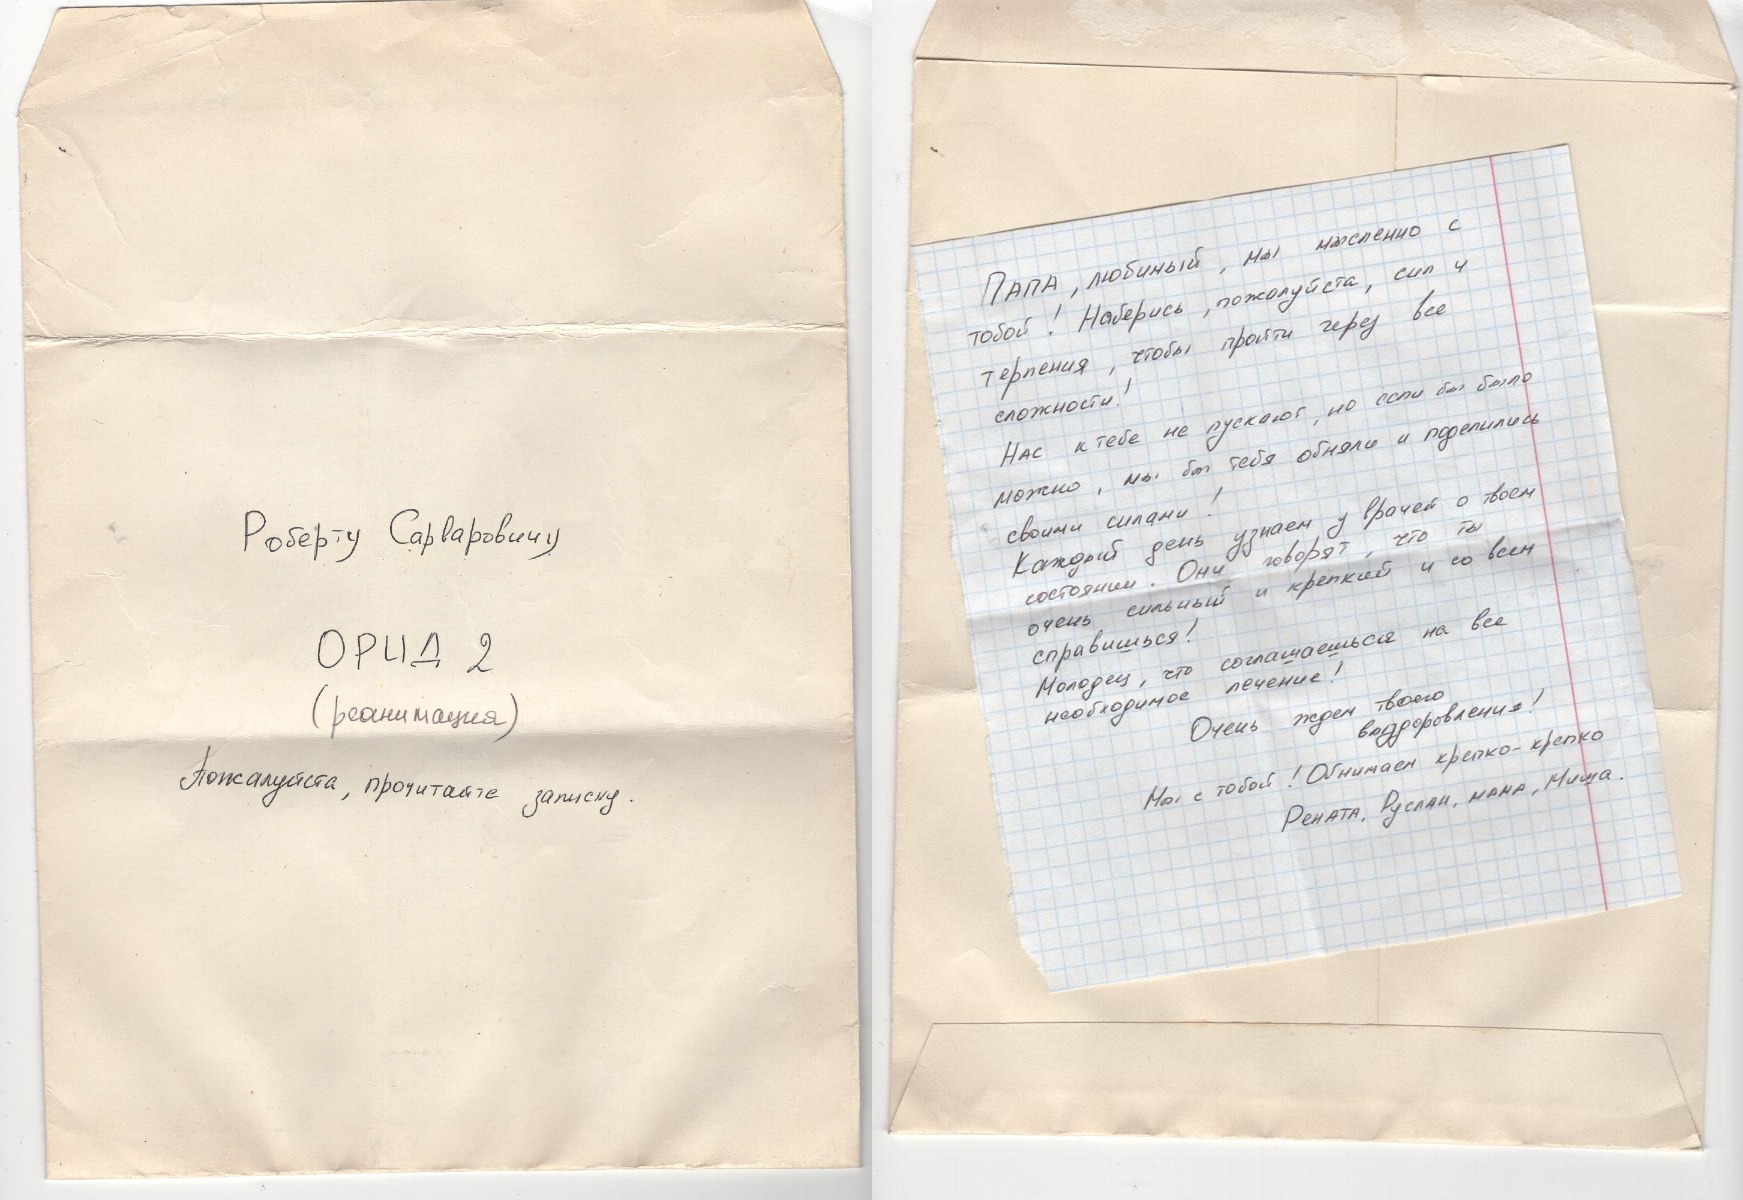 Роберту Сарваровичу
ОРИД 2
(реанимация)
Пожалуйста, прочитайте записку.
Папа, любимый, мы мысленно с
тобой! Наберись, пожалуйста, сил и
терпения, чтобы пройти через все
сложности!
Нас к тебе не пускают, но если бы было
можно, мы бы тебя обняли и поделились
своими силами!
Каждый день узнаем у врачей о твоем
состоянии. Они говорят, что ты
очень сильный и крепкий и со всем
справишься!
Молодец, что соглашаешься на все
необходимое лечение!
Очень ждем твоего
выздоровления!
Мы с тобой! Обнимаем крепко-крепко
Рената, Руслан, мама, Миша.